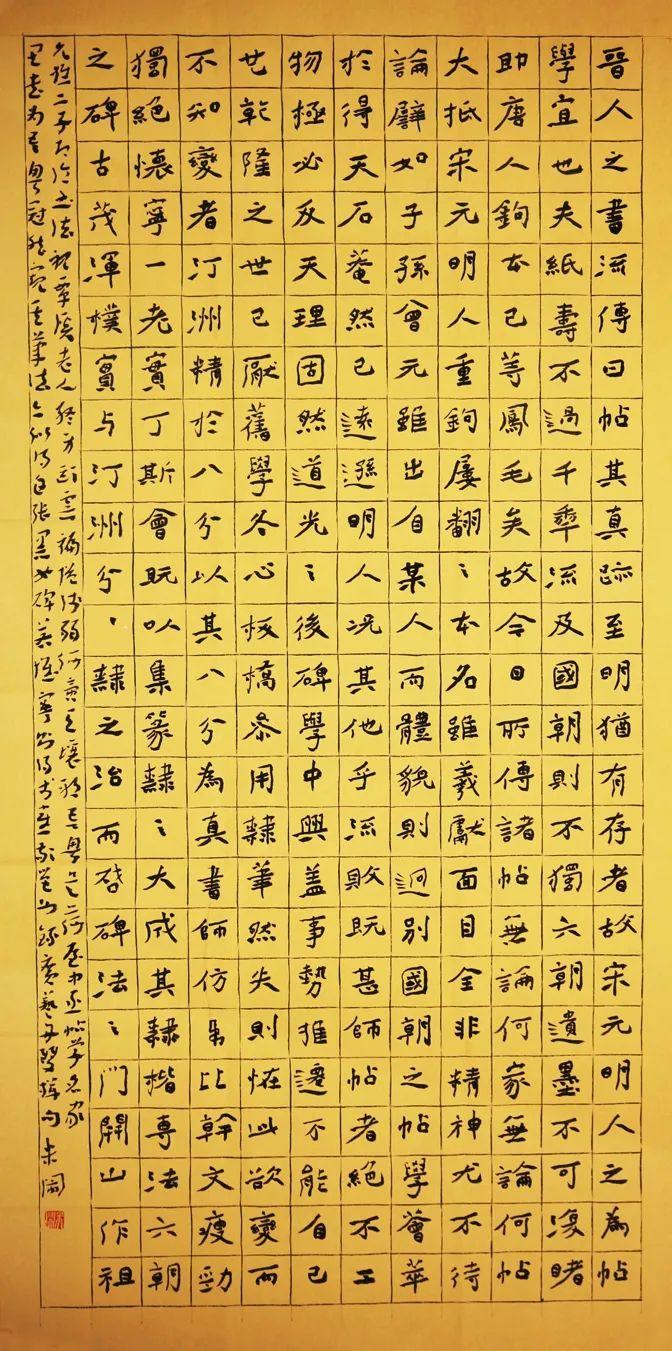 晉人之書流傳曰帖其真跡至明猶有存者故宋元明人之為帖
學宜也夫紙壽不過千年流及國朝則不獨六朝遺墨不可復睹
助唐人鉤本已等鳳毛矣故今日所傳諸帖無論何家無論何帖
大抵宋元明人重鉤屢翻〻本名雖羲獻面目全非精神尤不待
論譬如子孫曾元雖出自某人而體貌則迥別國朝之帖學薈萃
於得天石菴然已遠遜明人況其他乎流敗既甚師帖者絕不工
物極必反天理固然道光〻後碑學中興蓋事勢推遷不能自已
也乾隆之世已厭舊學冬心板橋參用隸筆然失則怪此欲變而
不知變者汀洲精於八分以其八分為真書師仿吊比幹文瘦勁
獨絕懷寧一老實丁斯會既以集篆隸〻大成其隸楷專法六朝
之碑古茂渾樸實与汀洲分〻隸之治而啓碑法〻門開山作祖
允推二子 老人 帖學名家
碑 廣藝舟雙楫句